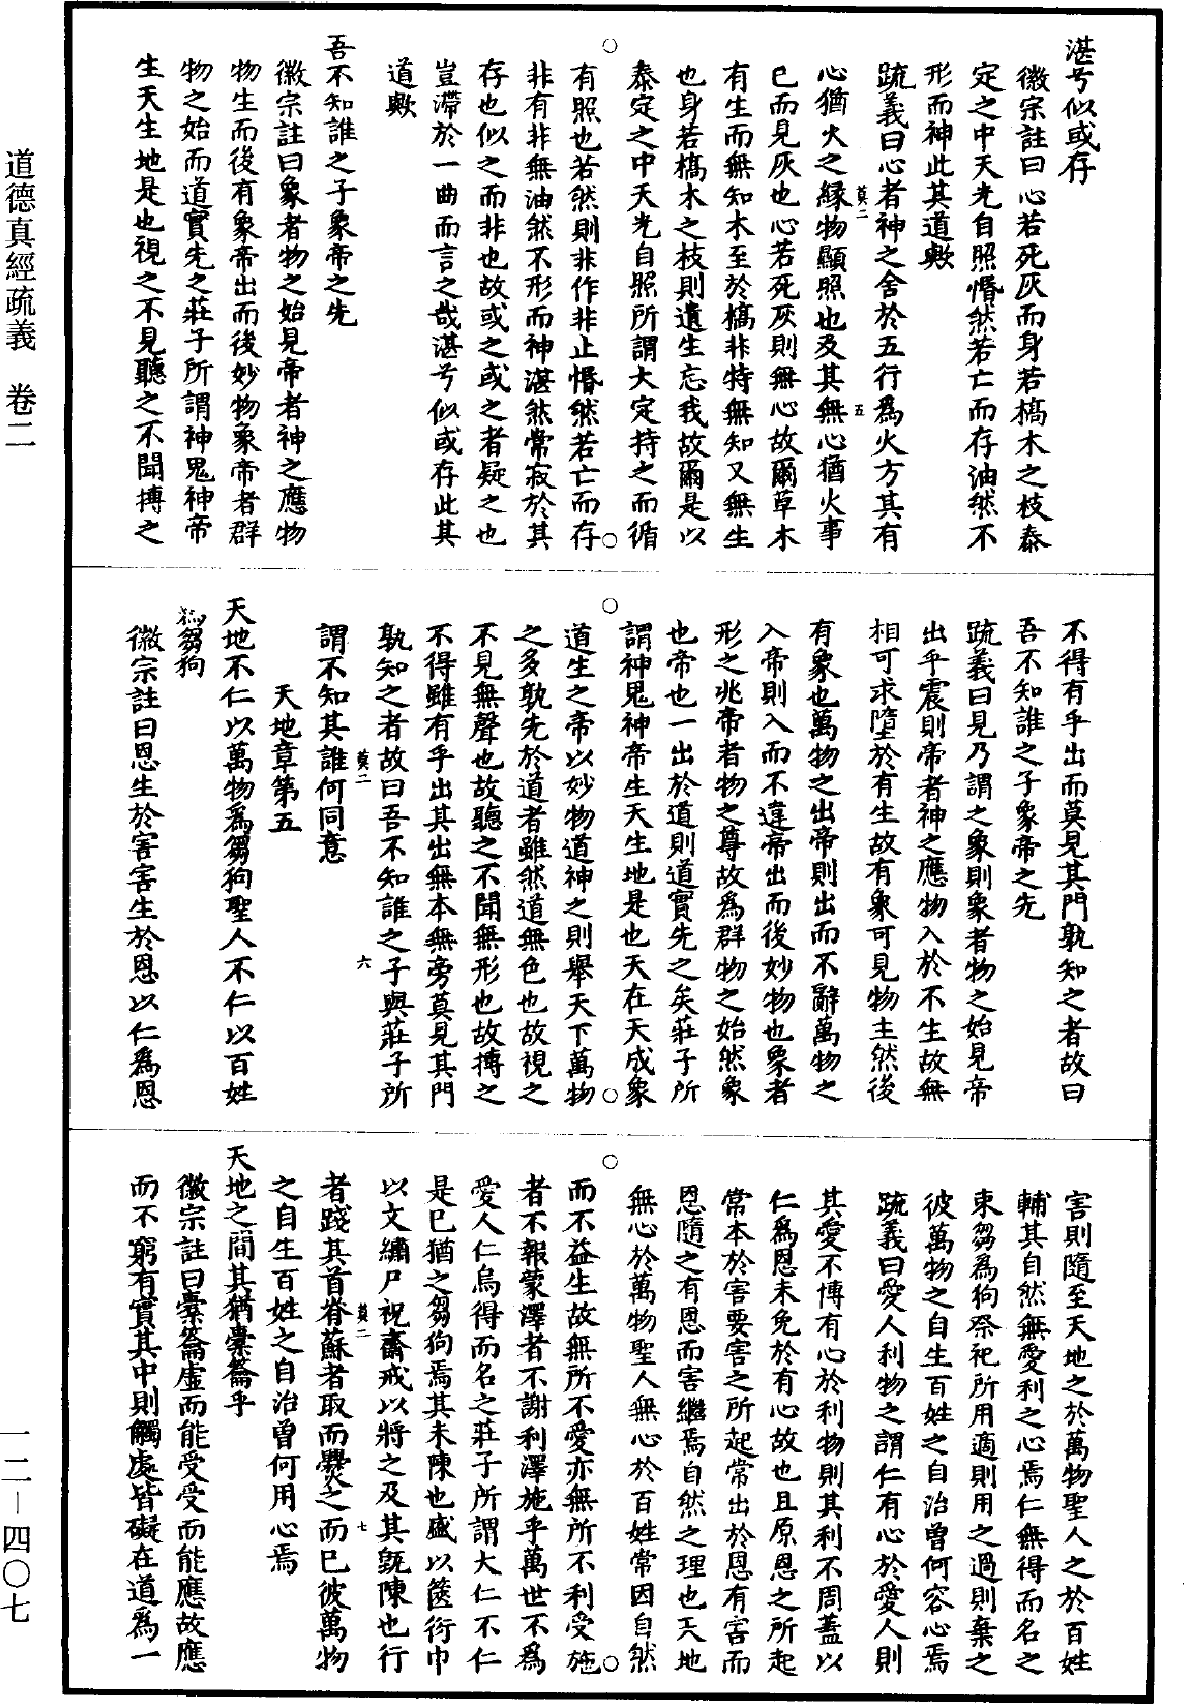 湛兮似或存
徽宗註曰心若死灰而身若槁木之枝泰
定之中天光自照惛然若亡而存油然不
形而神此其道歟
疏義曰心者神之舍於五行爲火方其有
心猶火之緣物顯照也及其無心猶火事
已而見灰也心若死灰則無心故爾草木
有生而無知木至於槁非特無知又無生
也身若槁木之枝則遺生忘我故爾是以
泰定之中天光自照所謂大定持之而循
有照也若然則非作非止惛然若亡而存
非有非無油然不形而神湛然常寂於其
存也似之而非也故或之或之者疑之也
豈滯於一曲而言之哉湛兮似或存此其
道歟
吾不知誰之子象帝之先
徽宗註曰象者物之始見帝者神之應物
物生而後有象帝出而後妙物象帝者群
物之始而道實先之莊子所謂神鬼神帝
生天生地是也視之不見聽之不聞搏之
莫二
五
不得有乎出而莫見其門孰知之者故曰
吾不知誰之子象帝之先
疏義曰見乃謂之象則象者物之始見帝
出乎震則帝者神之應物入於不生故無
相可求墮於有生故有象可見物生然後
有象也萬物之出帝則出而不辭萬物之
入帝則入而不違帝出而後妙物也象者
形之兆帝者物之尊故爲群物之始然象
也帝也一出於道則道實先之矣莊子所
謂神鬼神帝生天生地是也天在天成象
道生之帝以妙物道神之則舉天下萬物
之多孰先於道者雖然道無色也故視之
不見無聲也故聽之不聞無形也故搏之
不得雖有乎出其出無本無旁莫見其門
孰知之者故曰吾不知誰之子與莊子所
謂不知其誰何同意
莫二
六
天地章第五
天地不仁以萬物爲芻狗聖人不仁以百姓
爲芻狗
徽宗註曰恩生於害害生於恩以仁爲恩
害則隨至天地之於萬物聖人之於百姓
輔其自然無愛利之心焉仁無得而名之
束芻爲狗祭祀所用適則用之過則棄之
彼萬物之自生百姓之自治曾何容心焉
疏義曰愛人利物之謂仁有心於愛人則
其愛不博有心於利物則其利不周蓋以
仁爲恩未免於有心故也且原恩之所起
常本於害要害之所起常出於恩有害而
恩隨之有恩而害繼焉自然之理也天地
無心於萬物聖人無心於百姓常因自然
而不益生故無所不愛亦無所不利受施
者不報蒙澤者不謝利澤施乎萬世不爲
愛人仁烏得而名之莊子所謂大仁不仁
是已猶之芻狗焉其未陳也盛以篋衍巾
以文繡尸祝齋戒以將之及其旣陳也行
者踐其首脊蘇者取而爨之而已彼萬物
之自生百姓之自治曾何用心焉
莫二
七
天地之間其猶橐籥乎
徽宗註曰橐籥虛而能受受而能應故應
而不窮有實其中則觸處皆礙在道爲一
道德真經疏義　卷二
一二－四〇七